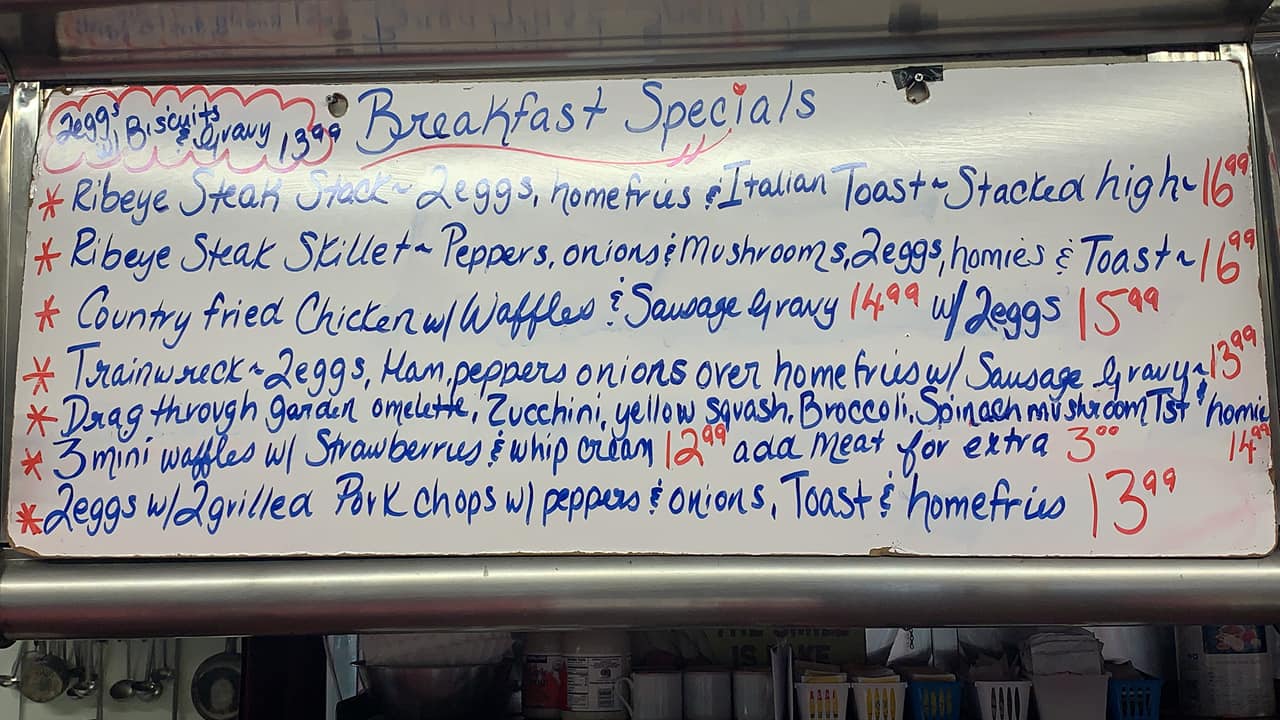 2eggs w/ Biscuits & Gravy 13.99
Breakfast Specials
* Ribeye Steak Stack ~ 2eggs, homefries & Italian Toast ~ Stacked high ~ 16.99
* Ribeye Steak Skillet ~ Peppers, onions & Mushrooms, 2eggs, homies & Toast ~ 16.99
* Country fried Chicken w/ Waffles & Sausage Gravy 14.99 w/ 2eggs 15.99
* Trainwreck ~ 2eggs, Ham, peppers onions over homefries w/ Sausage Gravy ~ 13.99
* Drag through garden omelette, Zucchini, yellow squash, Broccoli, Spinach mushroom Tst & homies 14.99
* 3 mini waffles w/ Strawberries & whip cream 12.99 add meat for extra 3.00
* 2eggs w/ 2grilled Pork chops w/ peppers & onions, Toast & homefries 13.99